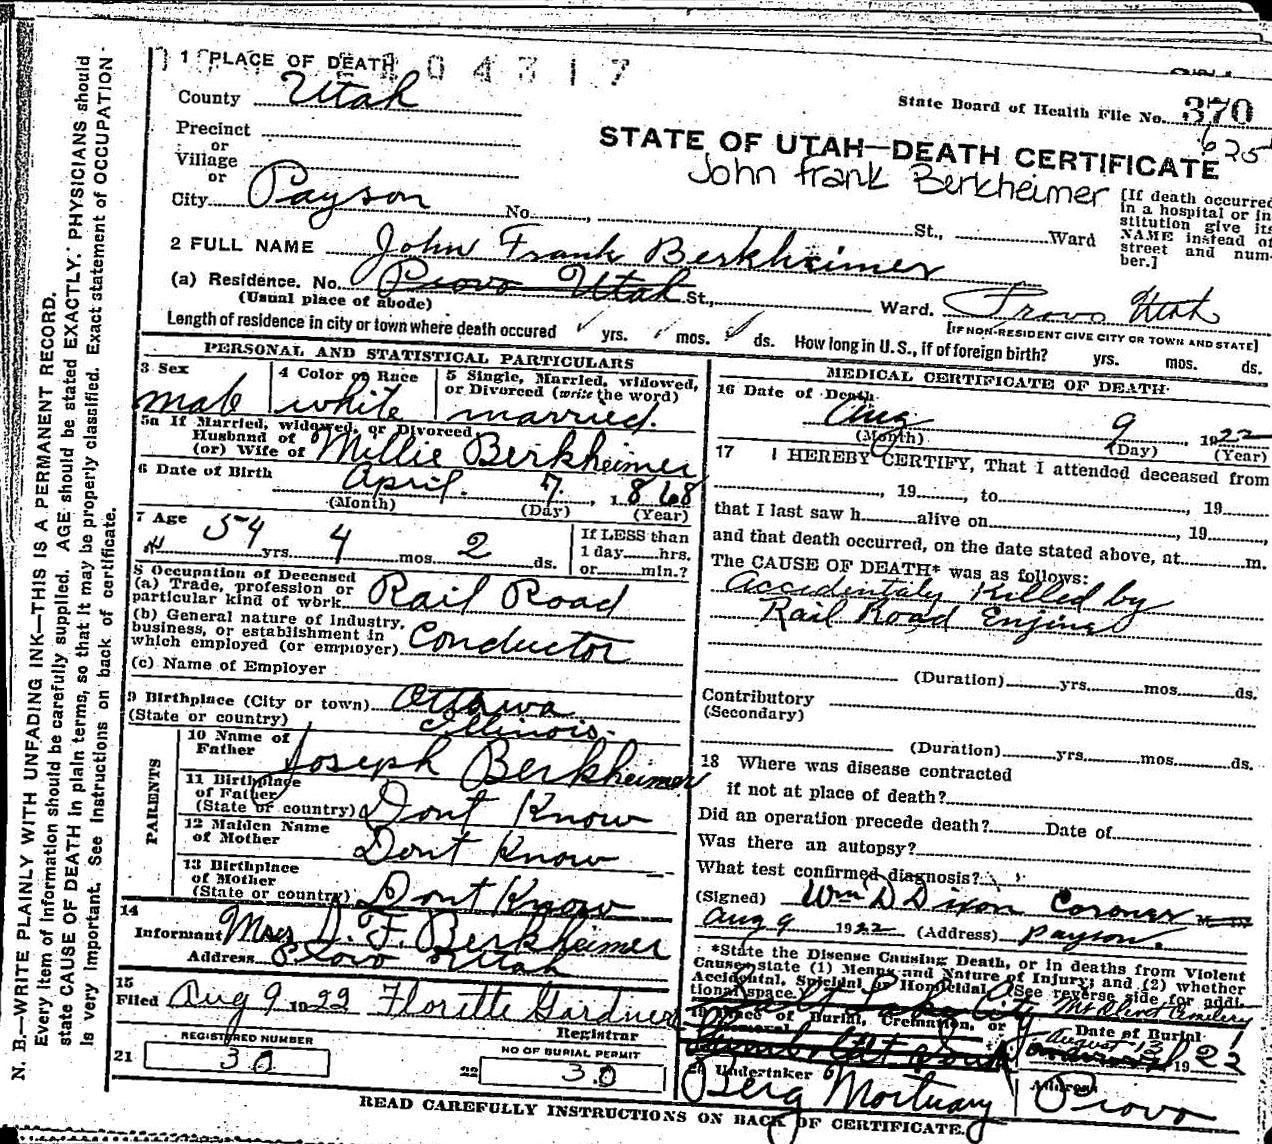 1 PLACE OF DEATH
04317
County Utah
State Board of Health File No. 370
625
Precinct
or
Village
or
STATE OF UTAH—DEATH CERTIFICATE
John Frank Berkheimer
City Payson No. , St., Ward
[If death occurred
in a hospital or in
stitution give its
NAME instead of
street and num-
ber.]
2 FULL NAME John Frank Berkheimer
(a) Residence. No. Provo Utah St., Ward. Provo Utah
(Usual place of abode)
[IF NON-RESIDENT GIVE CITY OR TOWN AND STATE]
Length of residence in city or town where death occured yrs. mos. ds. How long in U.S., if of foreign birth? yrs. mos. ds.
PERSONAL AND STATISTICAL PARTICULARS
3 Sex
male
4 Color or Race
white
5 Single, Married, widowed,
or Divorced (write the word)
married.
5a If Married, widowed, or Divorced
Husband of
(or) Wife of Millie Berkheimer
6 Date of Birth
April. 7. 1868
(Month) (Day) (Year)
7 Age
54 yrs. 4 mos. 2 ds.
If LESS than
1 day hrs.
or min.?
8 Occupation of Deceased
(a) Trade, profession or
particular kind of work Rail Road
(b) General nature of Industry,
business, or establishment in
which employed (or employer) Conductor
(c) Name of Employer
9 Birthplace (City or town) Ottawa
(State or country) Illinois.
PARENTS
10 Name of
Father Joseph Berkheimer
11 Birthplace
of Father
(State or country) Dont Know
12 Maiden Name
of Mother Dont Know
13 Birthplace
of Mother
(State or country) Dont Know
14
Informant Mrs J. F. Berkheimer
Address Provo Utah
15
Filed Aug 9 1922 Florette Gardner
Registrar
REGISTERED NUMBER
21 30
NO OF BURIAL PERMIT
22 30
MEDICAL CERTIFICATE OF DEATH
16 Date of Death
Aug 9, 1922
(Month) (Day) (Year)
17 I HEREBY CERTIFY, That I attended deceased from
, 19 , to , 19
that I last saw h alive on , 19
and that death occurred, on the date stated above, at m.
The CAUSE OF DEATH* was as follows:
Accidentaly Killed by
Rail Road Engine
(Duration) yrs. mos. ds.
Contributory
(Secondary)
(Duration) yrs. mos. ds.
18 Where was disease contracted
if not at place of death?
Did an operation precede death? Date of
Was there an autopsy?
What test confirmed diagnosis?
(Signed) Wm D Dixon Coroner
Aug 9 1922 (Address) Payson.
*State the Disease Causing Death, or in deaths from Violent
Causes, state (1) Means and Nature of Injury; and (2) whether
Accidental, Suicidal or Homicidal. (See reverse side for addi-
tional space.)
Salt Lake City Mt Olivet Cemetery
19 Place of Burial, Cremation, or
Removal
Date of Burial
August 13
1922
20 Undertaker
Berg Mortuary
Address
Provo
READ CAREFULLY INSTRUCTIONS ON BACK OF CERTIFICATE.
N. B.—WRITE PLAINLY WITH UNFADING INK—THIS IS A PERMANENT RECORD.
Every item of information should be carefully supplied. AGE should be stated EXACTLY. PHYSICIANS should
state CAUSE OF DEATH in plain terms, so that it may be properly classified. Exact statement of OCCUPATION
is very important. See instructions on back of certificate.